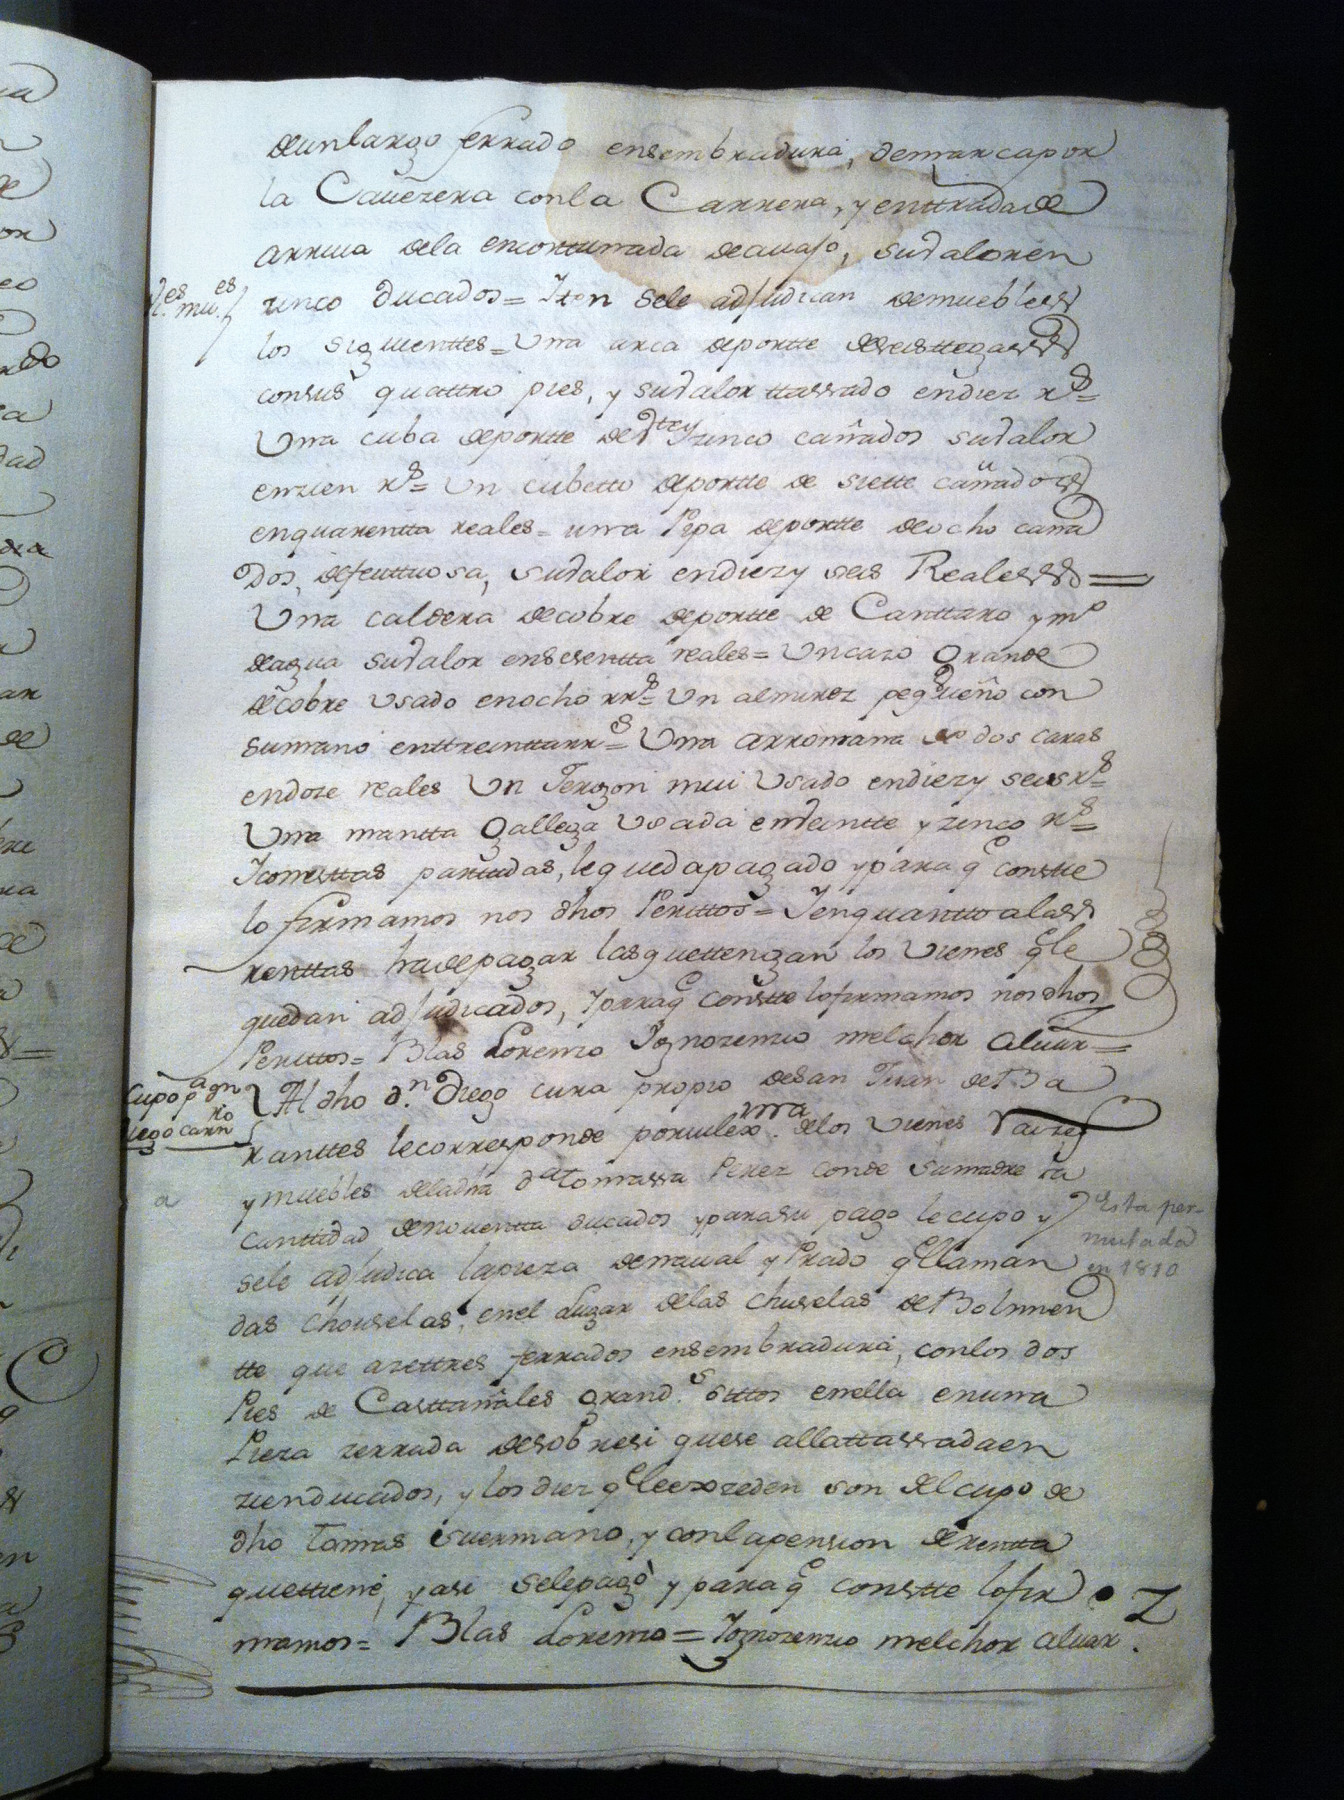 deunlargo ferrado ensembradura, demarcapor
la Cauezera conla Carrera, y enttradade
arriua dela encorturrada deauajo, sudaloren
zinco ducados = Iten sele adjudican demuebless
los siguienttes = Una arca deportte deseisttegass
consus quattro pies, y sudalor ttassado endiez rs =
Una cuba deportte de ttrey zinco cañados sudalor
enzien rs = Un cubetto deportte de siette cañados
enquarentta reales = una Pipa deportte deocho caña
dos, defettuosa, sudalor endiezy seis Realess =
Una caldera decobre deportte de Canttaro ymo
deagua sudalor ensesentta reales = Uncazo grande
decobre usado enocho rrs = Un almirez pequeño con
sumano enttreinttarrs = Una arromana de dos caras
endoze reales Un Jergon mui usado endiezy seisrs =
Una mantta gallega usada enveintte y zinco rs =
Iconesttas parttidas, lequedapagado yparaq constte
lo firmamos nos dhos Perittos = Ienquanttoalass
renttas hadepagar lasquettengan los vienes qle
quedan adjudicados, Iparaq constte lofirmamos nos dhos
Perittos = Blas Lorenzo Ignozenzio melchor aluar =
Al dho dn Diego cura propio desan Juan deBa
ranttes lecorresponde por delos vienes raizes
y muebles deladha da tomassa Perez conde sumadre la
canttidad denouentta ducados yparasu pago lecupo y
sele adjudica lapieza demaual y Prado qllaman
das chouselas, enel Lugar delas chuselas deBolmen
tte que azettres ferrados ensembradura, conlos dos
Pies de Casttañales grands sittos enella enuna
Pieza zerrada desobresi quese allattassadaen
zienducados, y losdiez qleexzeden son delcupo de
dho tomas suermano, y conlapension derentta
quettiene, yasi selepagò y paraq constte lofir
mamos = Blas Lorenzo = Ignozenzio melchor aluar.
Esta per-
mutada
en 1810